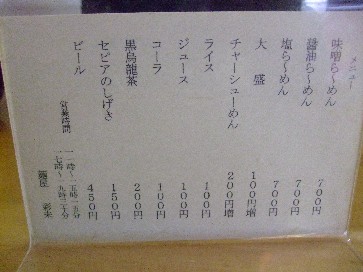 メニュー
味噌らーめん 700円
醤油らーめん 700円
塩らーめん 700円
大盛 100円増
チャーシューめん 200円増
ライス 100円
ジュース 100円
コーラ 100円
黒烏龍茶 200円
セピアのしげき 150円
ビール 450円
営業時間
一一時～一五時一五分
一七時～一九時二十分
麺屋 彩未